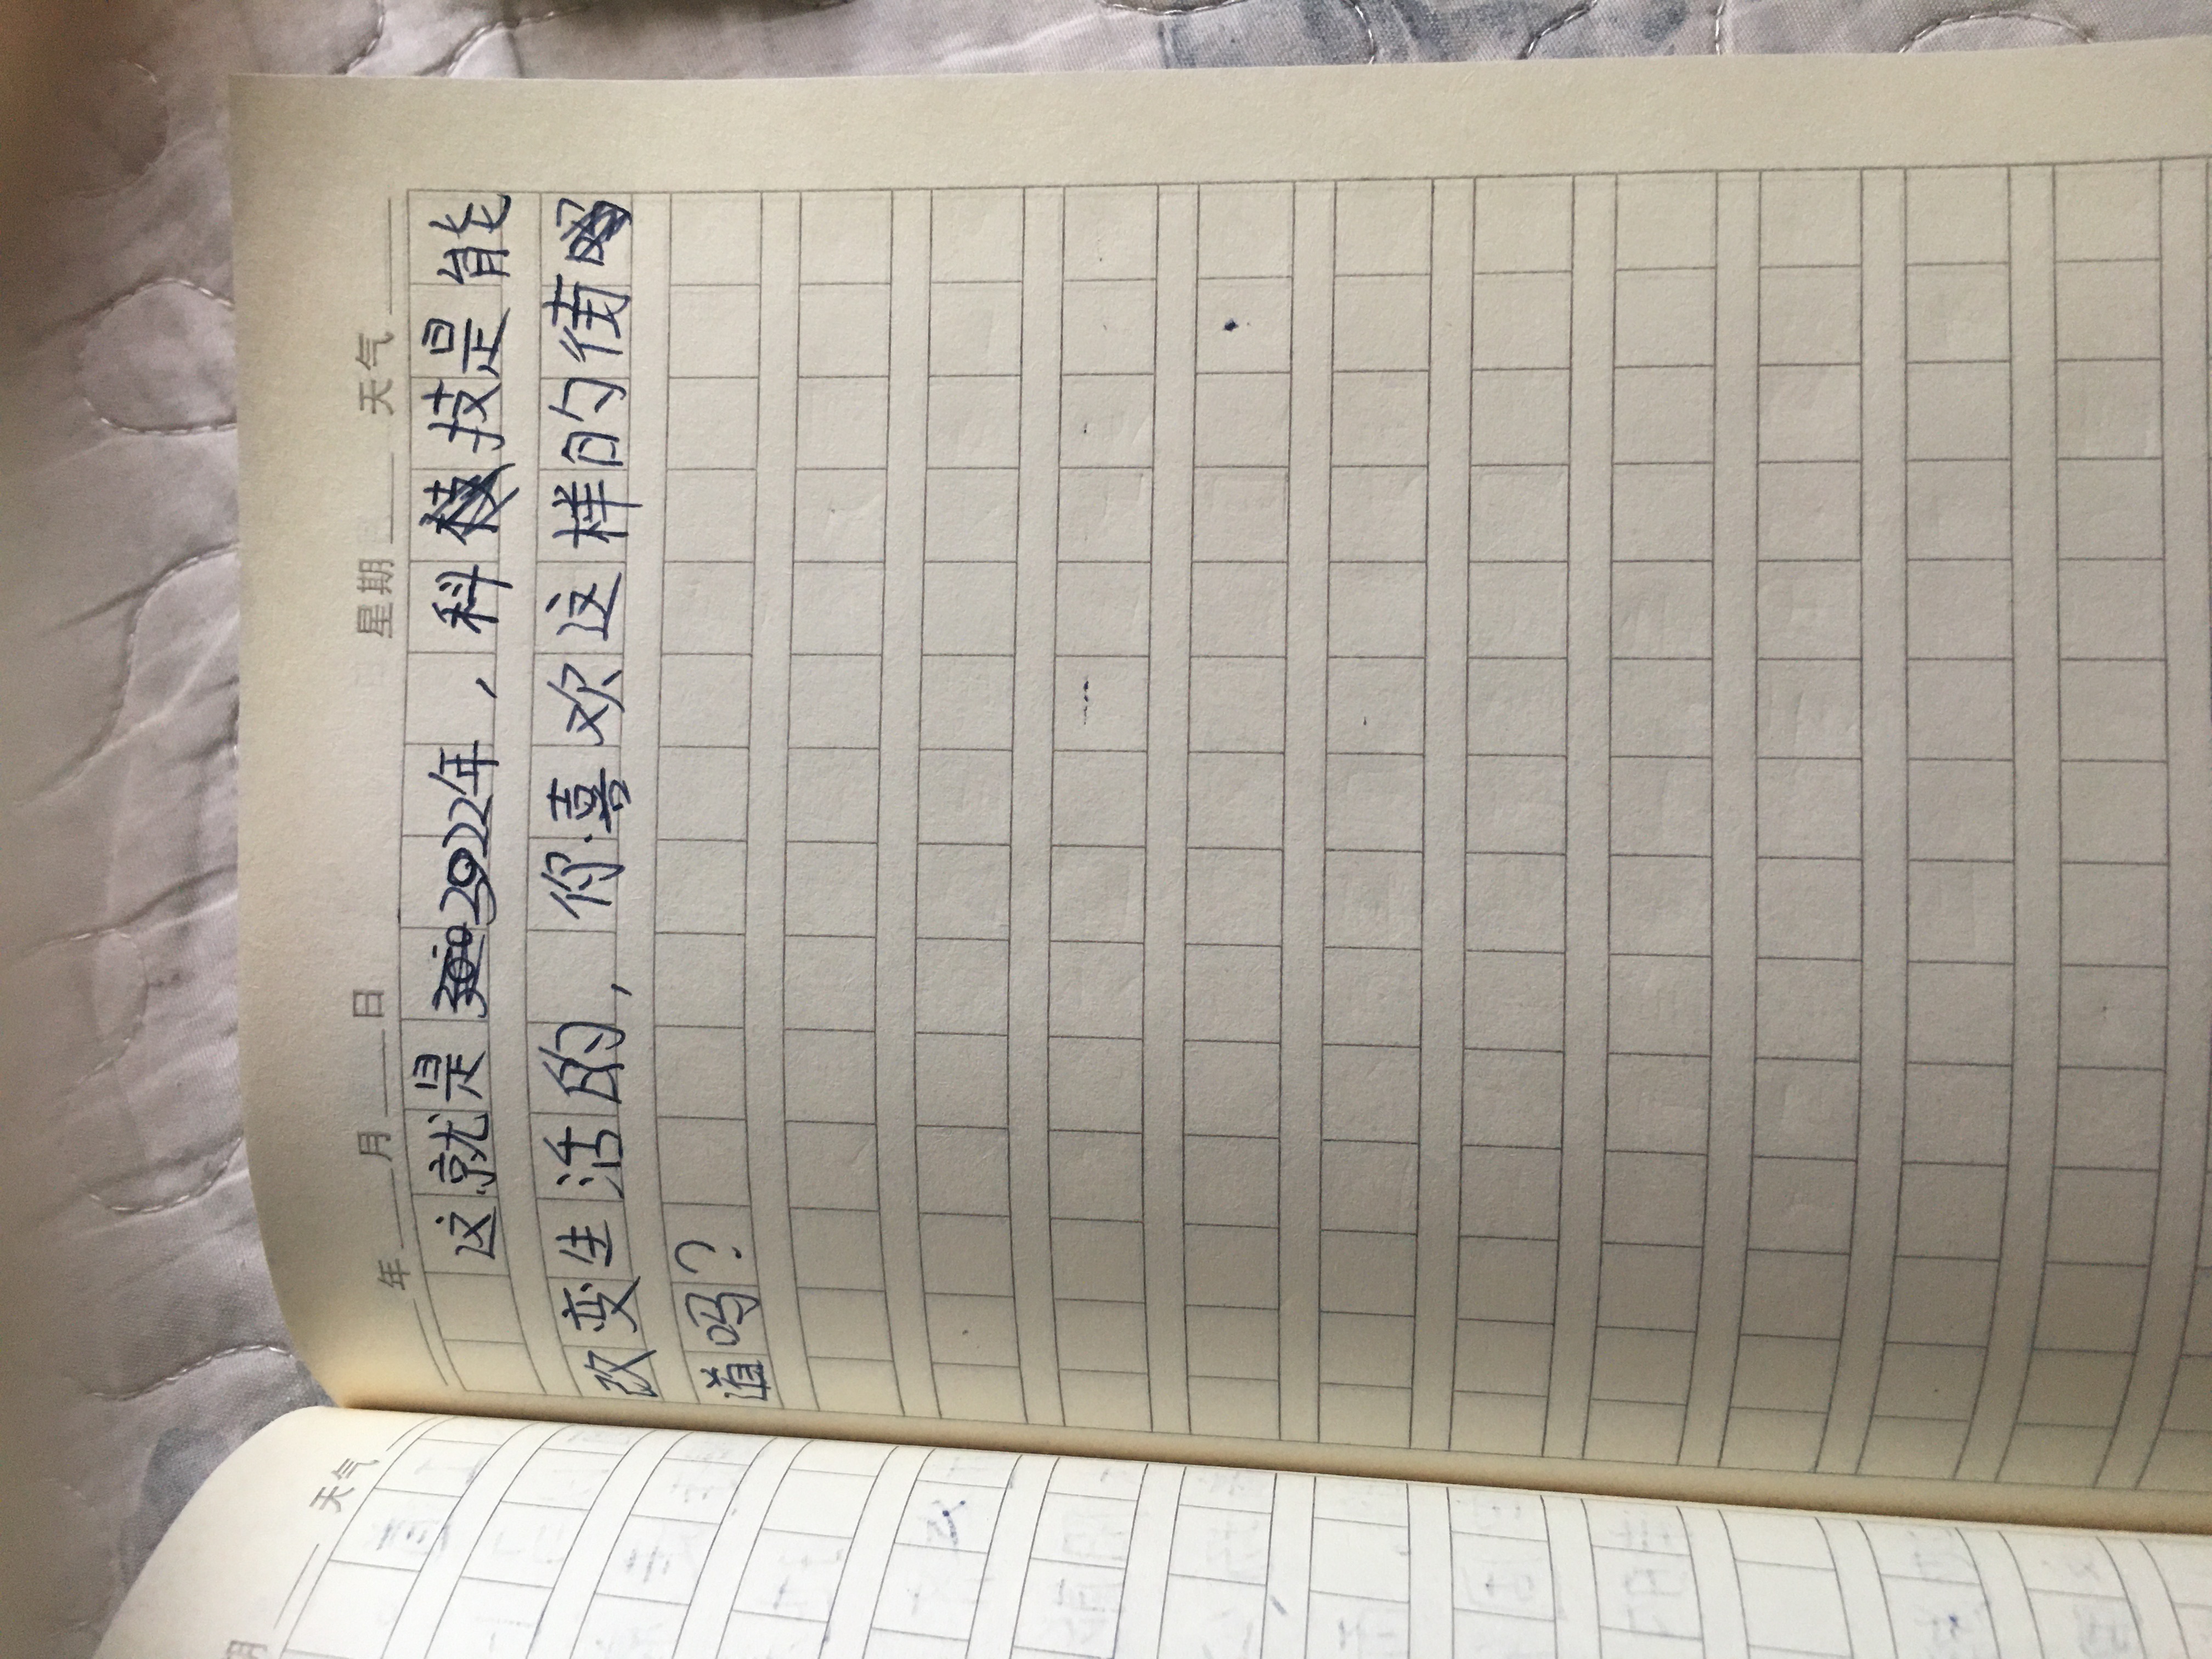 年 月 日 星期 天气
这就是2922年，科技是能
改变生活的，你喜欢这样的街
道吗？
天气